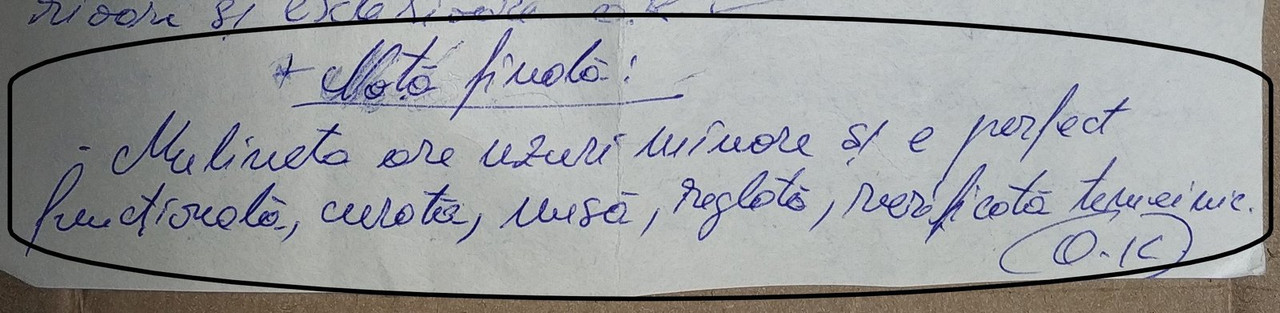 rioare și exterioare O.K
+ Notă finală:
- Mulineta are uzuri minore și e perfect
funcțională, curată, unsă, reglată, verificată temeinic.
O.K